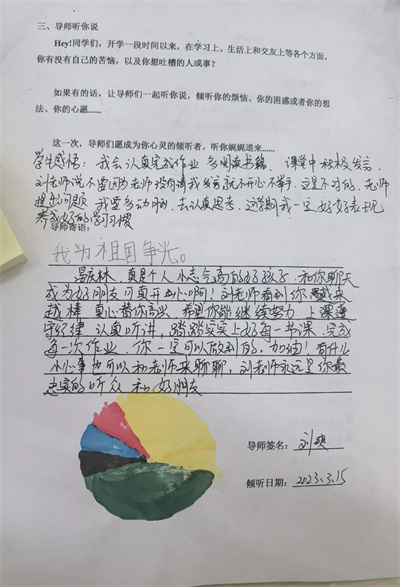 三、导师听你说
Hey!同学们，开学一段时间以来，在学习上、生活上和交友上等各个方面，
你有没有自己的苦恼，以及你想吐槽的人或事？
如果有的话，让导师们一起听你说，倾听你的烦恼、你的困惑或者你的想
法、你的心愿......
这一次，导师们愿成为你心灵的倾听者，听你娓娓道来......
学生感悟：我会认真完成作业 多阅读书籍，课堂中积极发言。
刘老师说不要因为老师没有请我发言就不开心不举手，这是不对的，老师
提出问题 我要多动脑，去认真思考。这学期我一定好好表现
养成好的学习习惯
导师寄语：
我为祖国争光。
庆林，真是个人小志气高的好孩子，和你聊天
成为好朋友可真开心啊！刘老师看到你越来
越棒 真心替你高兴 希望你能继续努力 上课遵
守纪律 认真听讲，踏踏实实上好每一节课，完成
每一次作业，你一定可以做到的，加油！有什么
小心事也可以和老师来聊聊，刘老师永远是你最
忠实的听众 和好朋友
导师签名：刘爽
倾听日期：2023.3.15